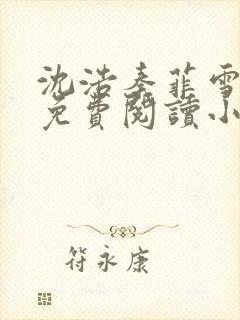 沈浩秦菲雪
免費閱讀小
符永康